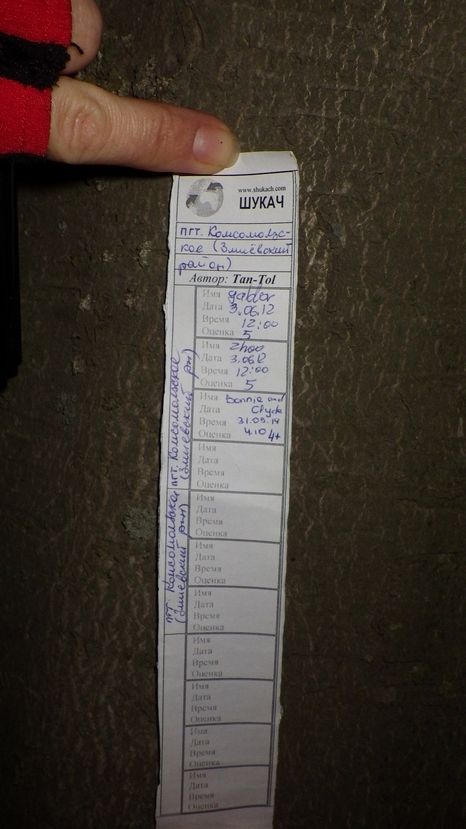 www.shukach.com
ШУКАЧ
пгт. Комсомольс-
кое (Змиёвский
район)
Автор: Tan-Tol
Имя gador
Дата 3.06.12
Время 12:00
Оценка 5
Имя zhoo
Дата 3.06.12
Время 12:00
Оценка 5
Имя Bonnie and
Дата Clyde
Время 31.05.14
Оценка 4.10 4+
Имя
Дата
Время
Оценка
Имя
Дата
Время
Оценка
Имя
Дата
Время
Оценка
Имя
Дата
Время
Оценка
Имя
Дата
Время
Оценка
Имя
Дата
Время
Оценка
Имя
Дата
Время
Оценка
Имя
Дата
Время
Оценка
пгт. Комсомольское
(Змиевский рн)
пгт. Комсомольское
(Змиевский рн)